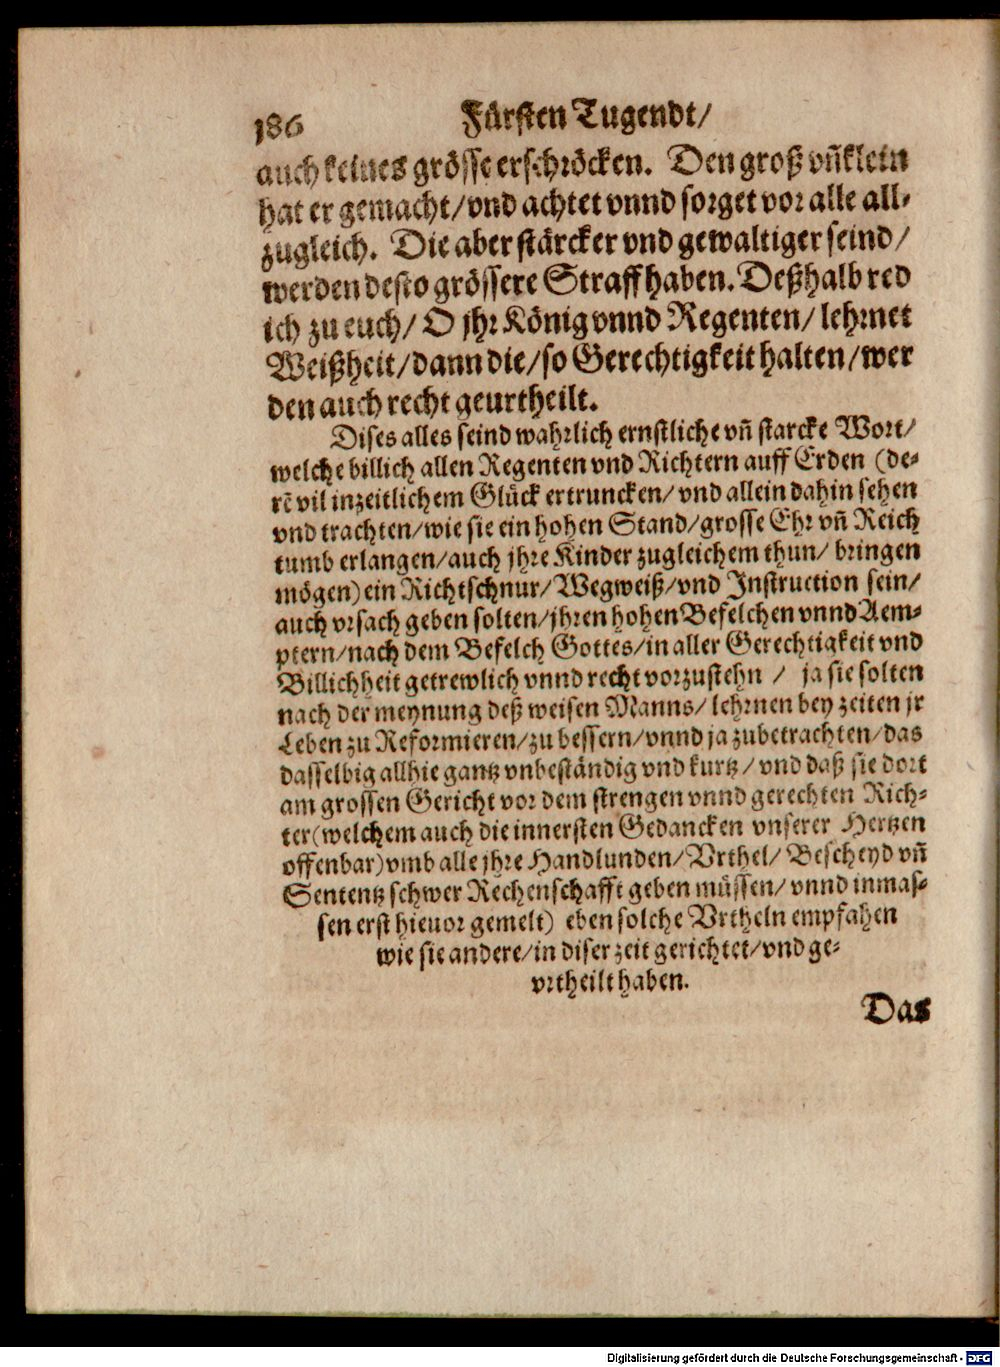 186 Fürsten Tugendt/
auch keines grösse erschröcken. Den groß vñ klein
hat er gemacht/ vnd achtet vnnd sorget vor alle all-
zugleich. Die aber stärcker vnd gewaltiger seind/
werden desto grössere Straff haben. Deßhalb red
ich zu euch/ O jhr König vnnd Regenten/ lehrnet
Weißheit/ dann die/ so Gerechtigkeit halten/ wer
den auch recht geurtheilt.
Dises alles seind wahrlich ernstliche vñ starcke Wort/
welche billich allen Regenten vnd Richtern auff Erden (de-
rē vil in zeitlichem Glück ertruncken/ vnd allein dahin sehen
vnd trachten/ wie sie ein hohen Stand/ grosse Ehr vñ Reich
tumb erlangen/ auch jhre Kinder zugleichem thun/ bringen
mögen) ein Richtschnur/ Wegweiß/ vnd Instruction sein/
auch vrsach geben solten/ jhren hohen Befelchen vnnd Aem-
ptern/ nach dem Befelch Gottes/ in aller Gerechtigkeit vnd
Billichheit getrewlich vnnd recht vorzustehn / ja sie solten
nach der meynung deß weisen Manns/ lehrnen bey zeiten jr
Leben zu Reformieren/ zu bessern/ vnnd ja zubetrachten/ das
dasselbig allhie gantz vnbeständig vnd kurtz/ vnd daß sie dort
am grossen Gericht vor dem strengen vnnd gerechten Rich-
ter (welchem auch die innersten Gedancken vnserer Hertzen
offenbar) vmb alle jhre Handlunden/ Vrthel/ Bescheyd vñ
Sententz schwer Rechenschafft geben müssen/ vnnd inmas-
sen erst hieuor gemelt) eben solche Vrtheln empfahen
wie sie andere/ in diser zeit gerichtet/ vnd ge-
vrtheilt haben.
Das
Digitalisierung gefördert durch die Deutsche Forschungsgemeinschaft - DFG